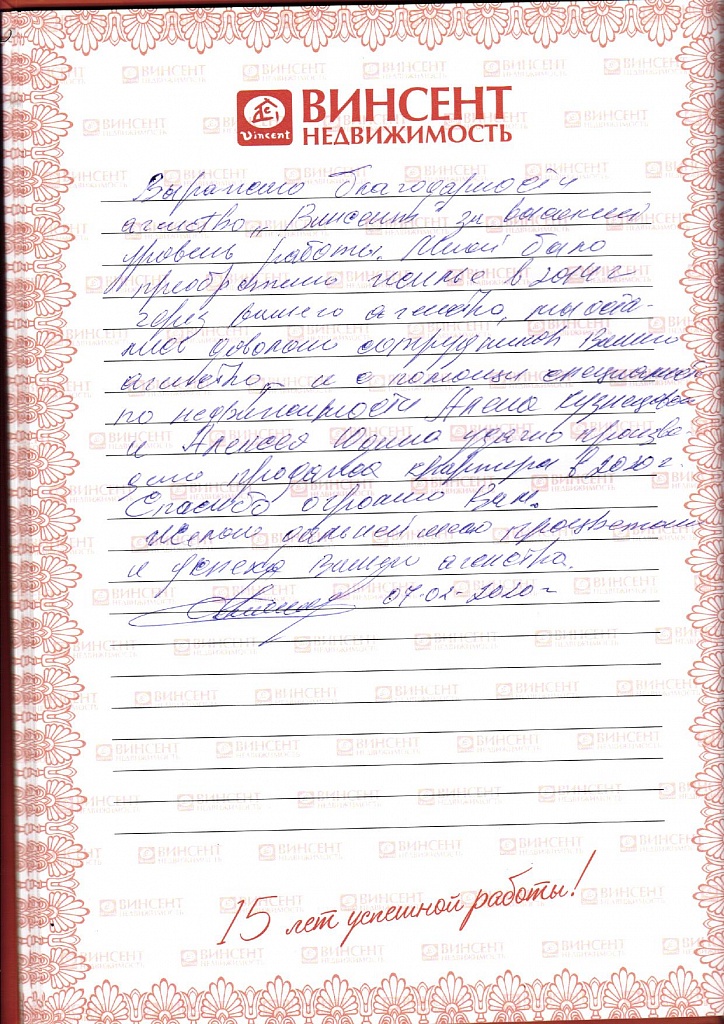 Vincent
ВИНСЕНТ
НЕДВИЖИМОСТЬ
Выражаю благодарность
агенство „Винсент" за высокий
уровень работы. Мной было
преобретено жилье в 2014 г
через вашего агенства, мы оста-
лись довольны сотрудником Вашего
агенства и с помощи специалист
по недвижимости Алена Кузнецова
и Алексея Юдина удачно произве-
дена продажа квартиры в 2020 г.
Спасибо огромно Вам.
Желаю дальнейшего процветания
и успеха Вашего агенства.
07-02-2020 г
15 лет успешной работы!